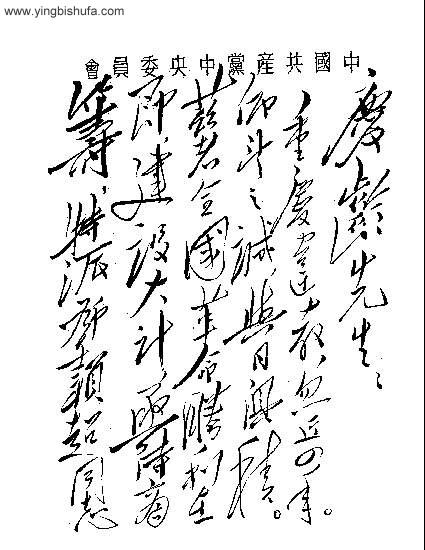 www.yingbishufa.com
中國共産黨中央委員會
慶齡先生：
重慶違教，忽近四年。
仰望之誠，與日俱積。
茲者全國革命勝利在
即，建設大計，亟待商
籌，特派鄧穎超同志